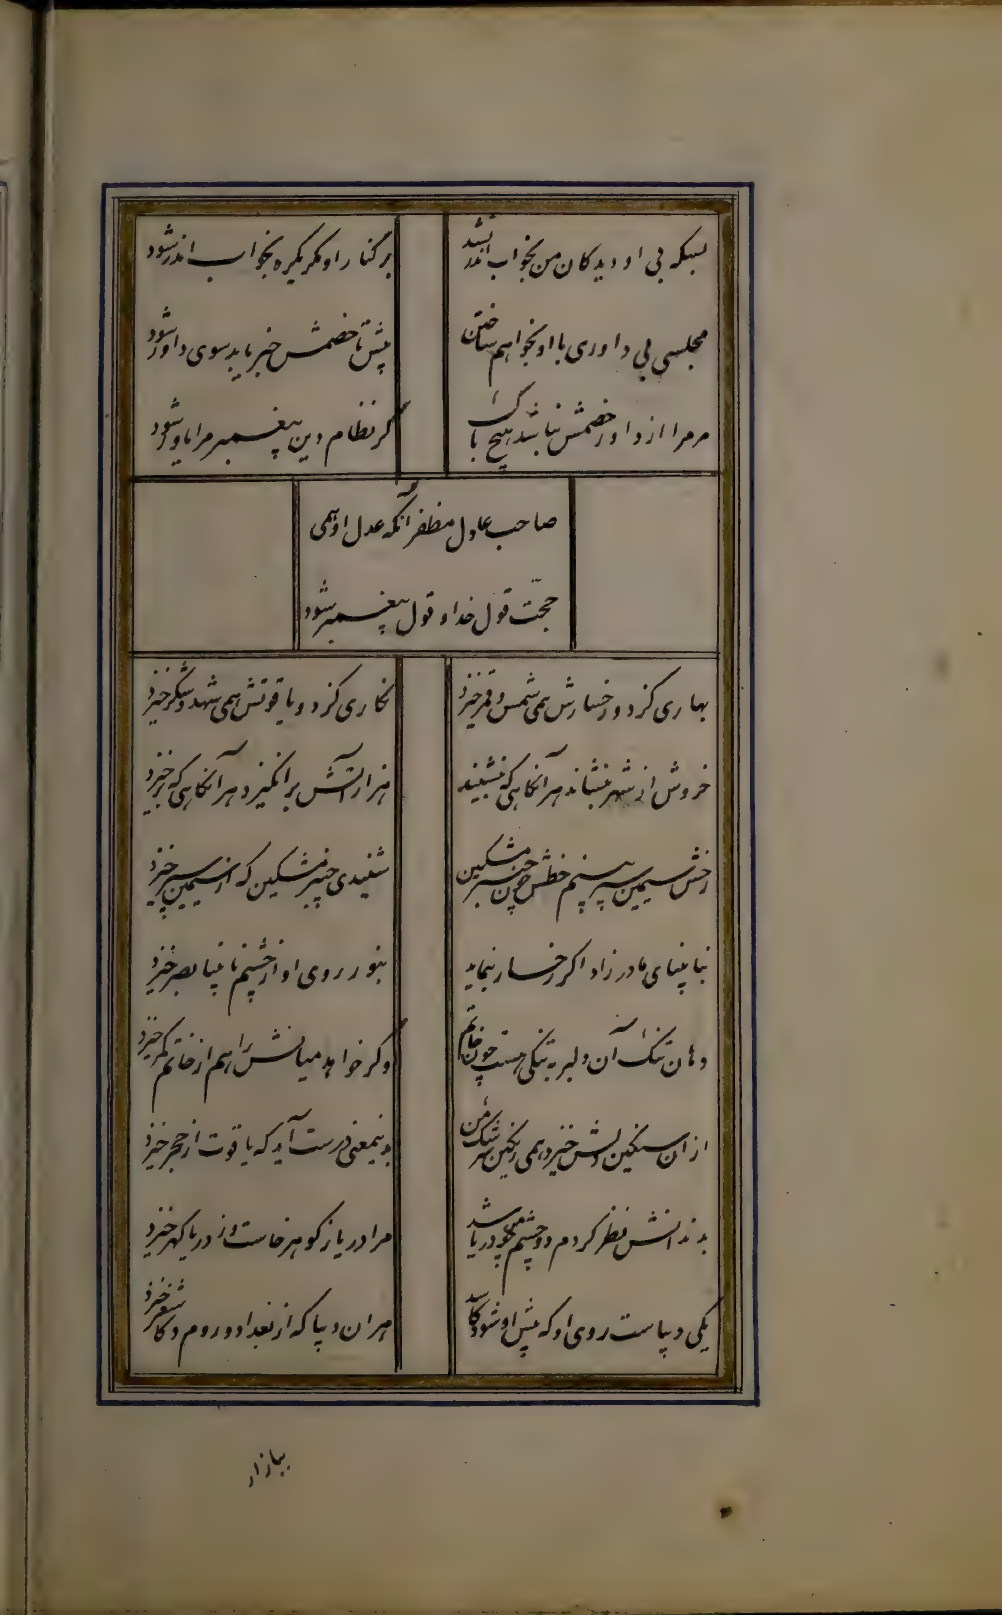 بسکه بی او دیدکان من بخواب اندر نشد
بر کنار او مکر یکره بخواب اندر شود
مجلسی بی داوری با او نخواهم ساختن
پیش تا خصمش خبر یابد سوی داور شود
مر مرا از داور و خصمش نباشد هیچ باک
کر نظام دین پیغمبر مرا یاور شود
صاحب عادل مظفر آنکه عدل او همی
حجّت قول خدا و قول پیغمبر شود
بهاری کزد و رخسارش همی شمس و قمر خیزد
نکاری کزد و یاقوتش همی شهد و شکر خیزد
خروش از شهر بنشاند هر آنکاهی که بنشیند
هزار آتش برانکیزد هر آنکاهی که برخیزد
رخش سیمین سپر بینم خطش چون چنبر مشکین
شنیدی چنبر مشکین که از سیمین سپر خیزد
بنابینای مادر زاد اکر رخسار بنماید
بنور روی او از چشم نابینا بصر خیزد
دهان تنک آن دلبر بتنکی هست چون خاتم
وکر خواهد میانش را هم از خاتم کمر خیزد
از ان سنکین دلش خیزد همی رنکین سرشک من
بدینمعنی درست آید که یاقوت از حجر خیزد
بدندانش نظر کردم دو چشمم همچو دریا شد
مرا دریا ز کوهر خاست وز دریا کهر خیزد
یکی دیباست روی او که پیش او شود کاسد
هر ان دیبا که از بغداد و روم و کاشغر خیزد
ببازار